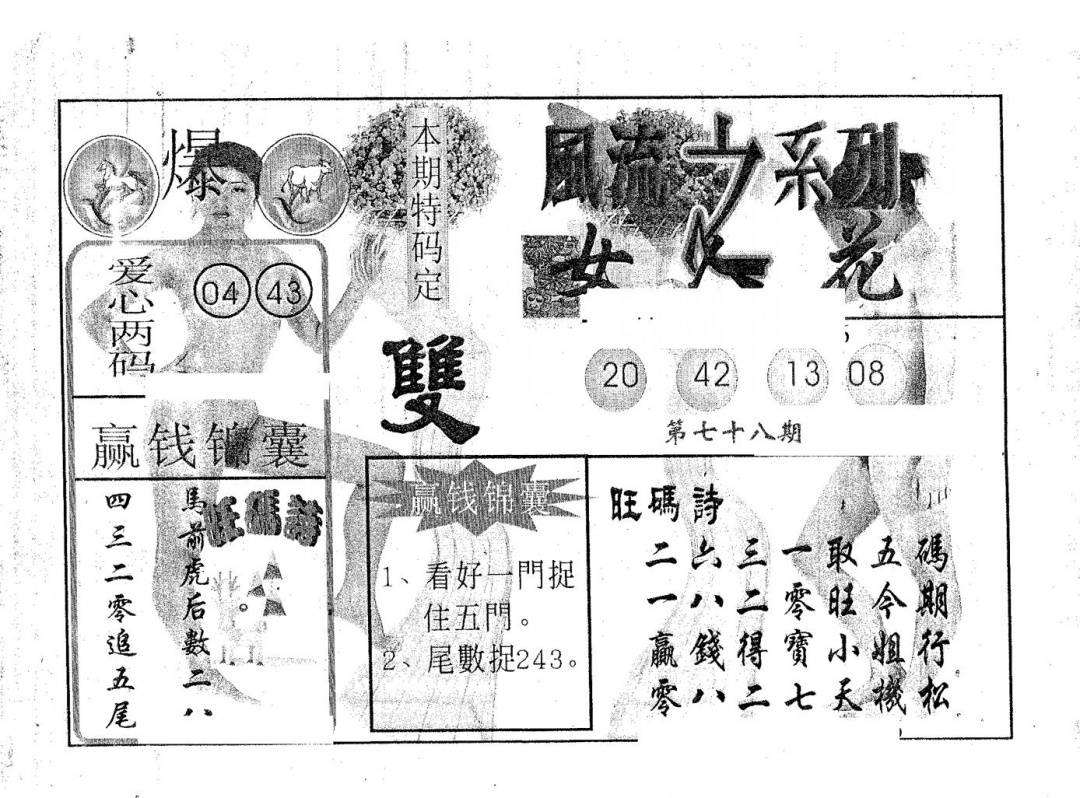 爆
爱心两码
04 43
赢钱锦囊
旺碼詩
馬前虎后數二八
四三二零追五尾
本期特码定
雙
赢钱锦囊
1、看好一門捉
住五門。
2、尾數捉243。
風流之系列
女人花
20 42 13 08
第七十八期
旺碼詩
二六三一取五碼
一八二零旺今期
贏錢得寶小姐行
零八二七天機松